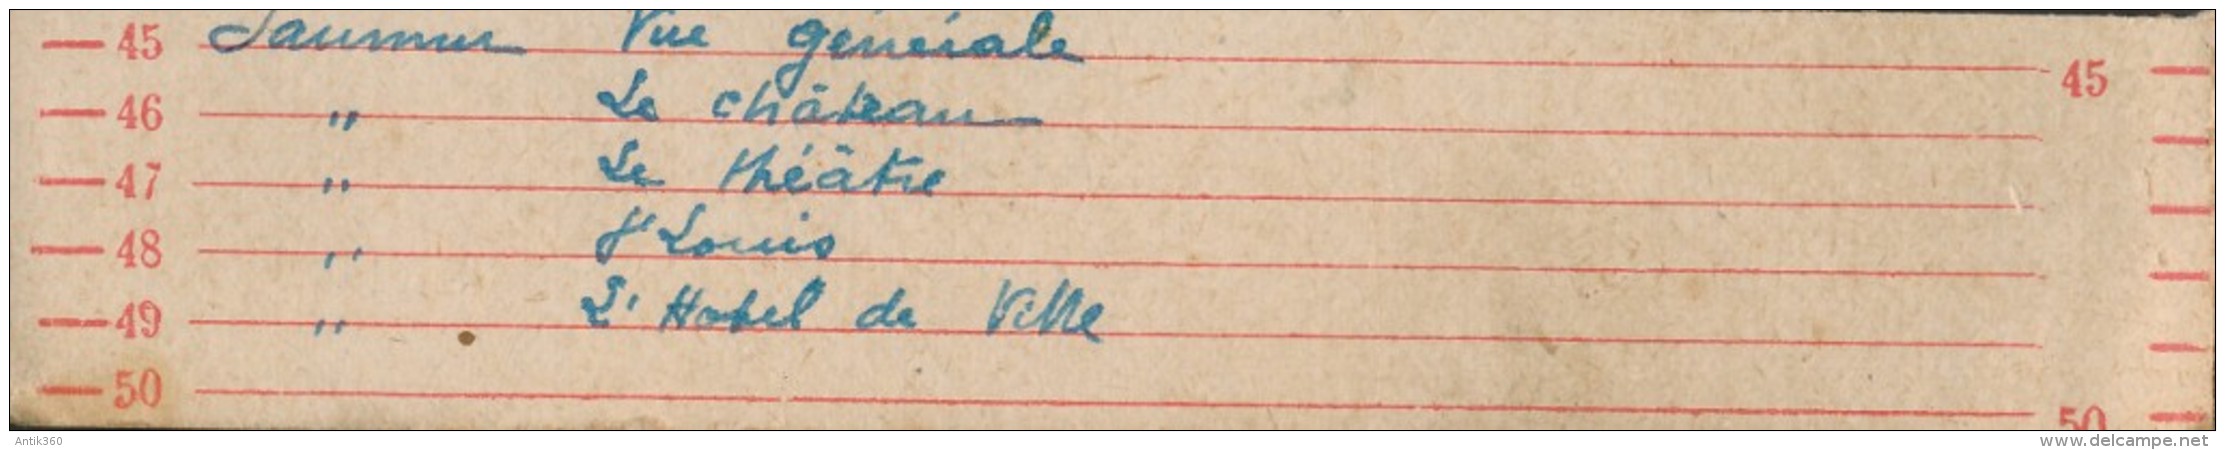 45 Saumur Vue générale 45
46 " Le château
47 " Le théâtre
48 " St Louis
49 " L'Hotel de Ville
50 50
Antik360 www.delcampe.net